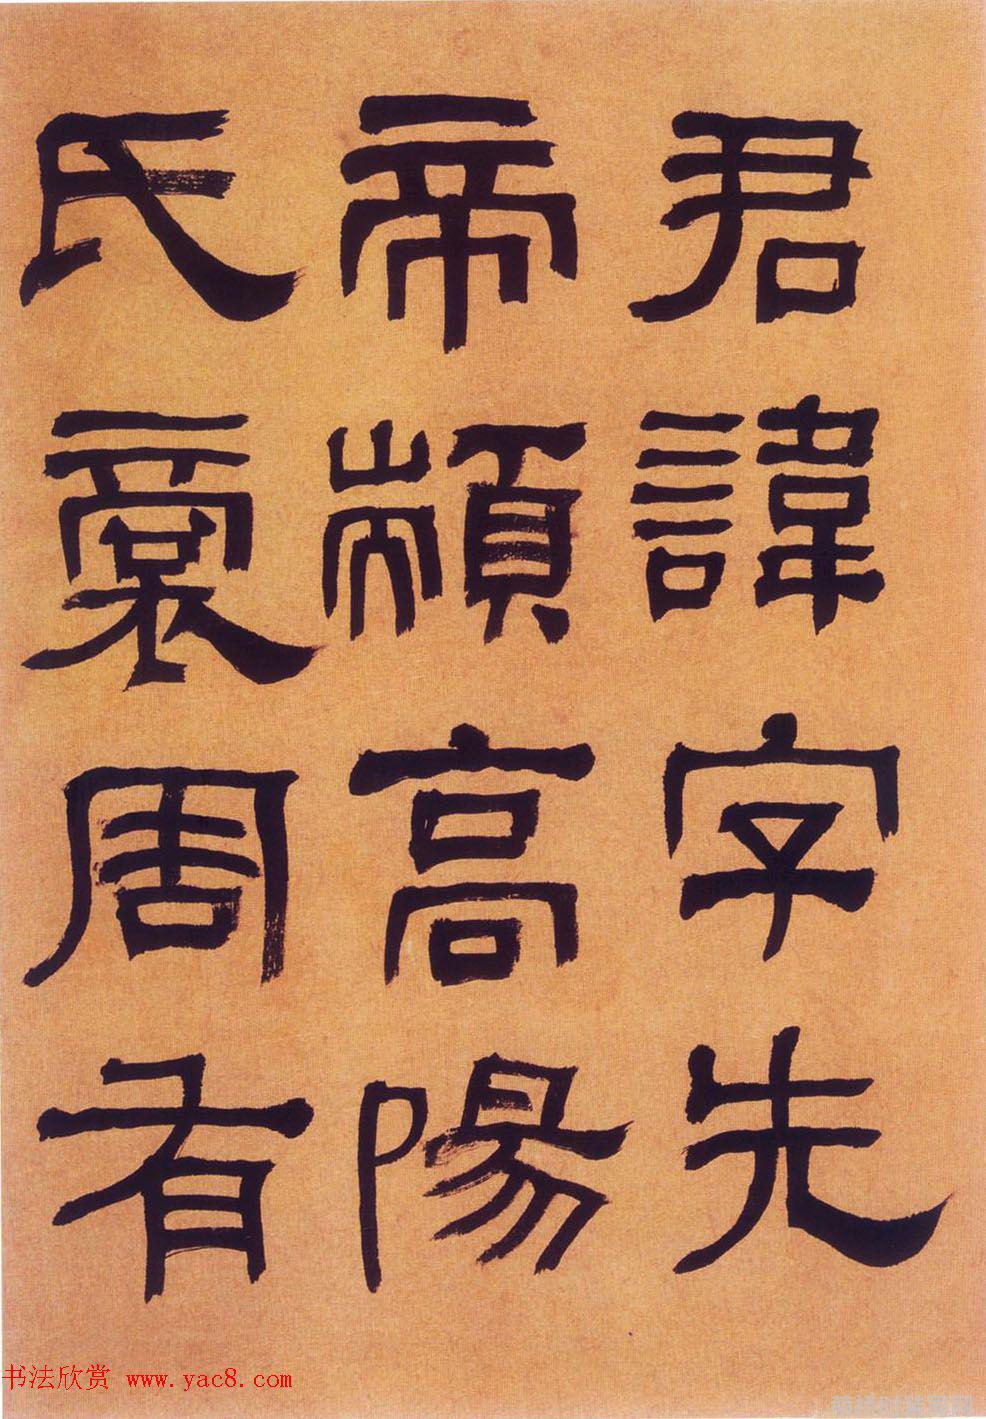 君諱字先
帝顓高陽
氏周有
书法欣赏 www.yac8.com